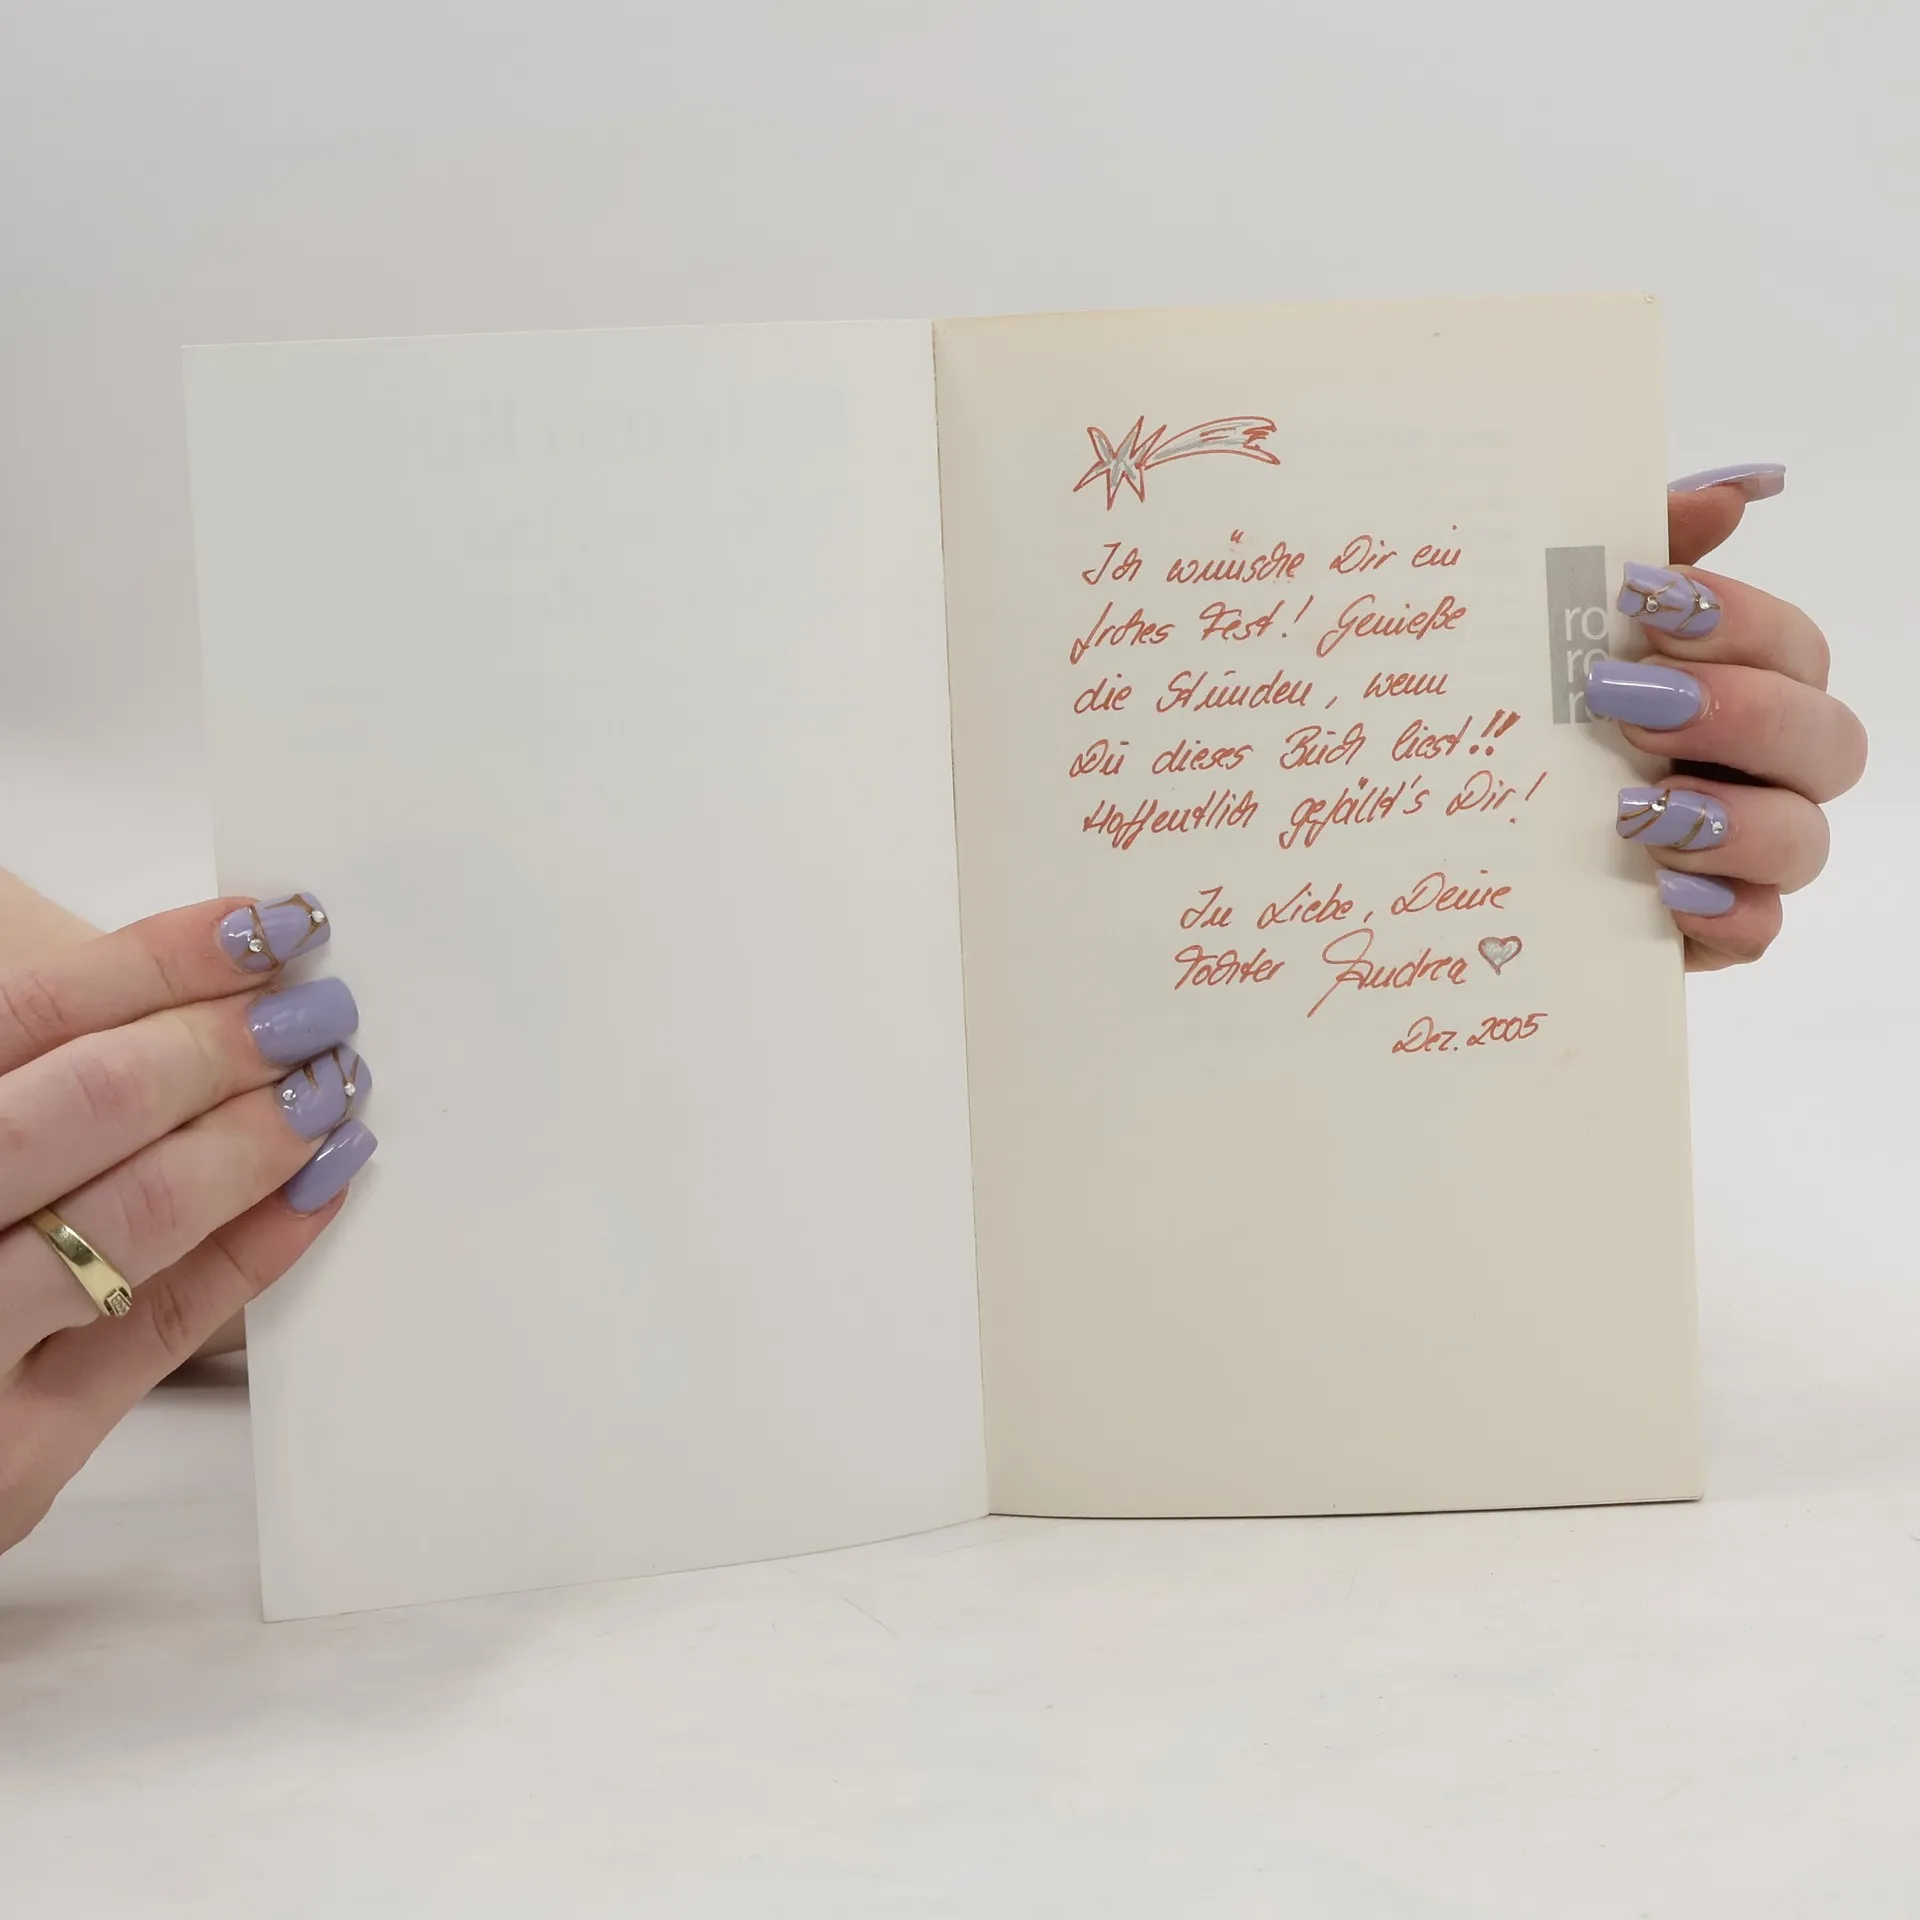 Ich wünsche Dir ein
frohes Fest! Genieße
die Stunden, wenn
Du dieses Buch liest!!
Hoffentlich gefällt's Dir!
In Liebe, Deine
Tochter Andrea
Dez. 2005
ro
ro
ro